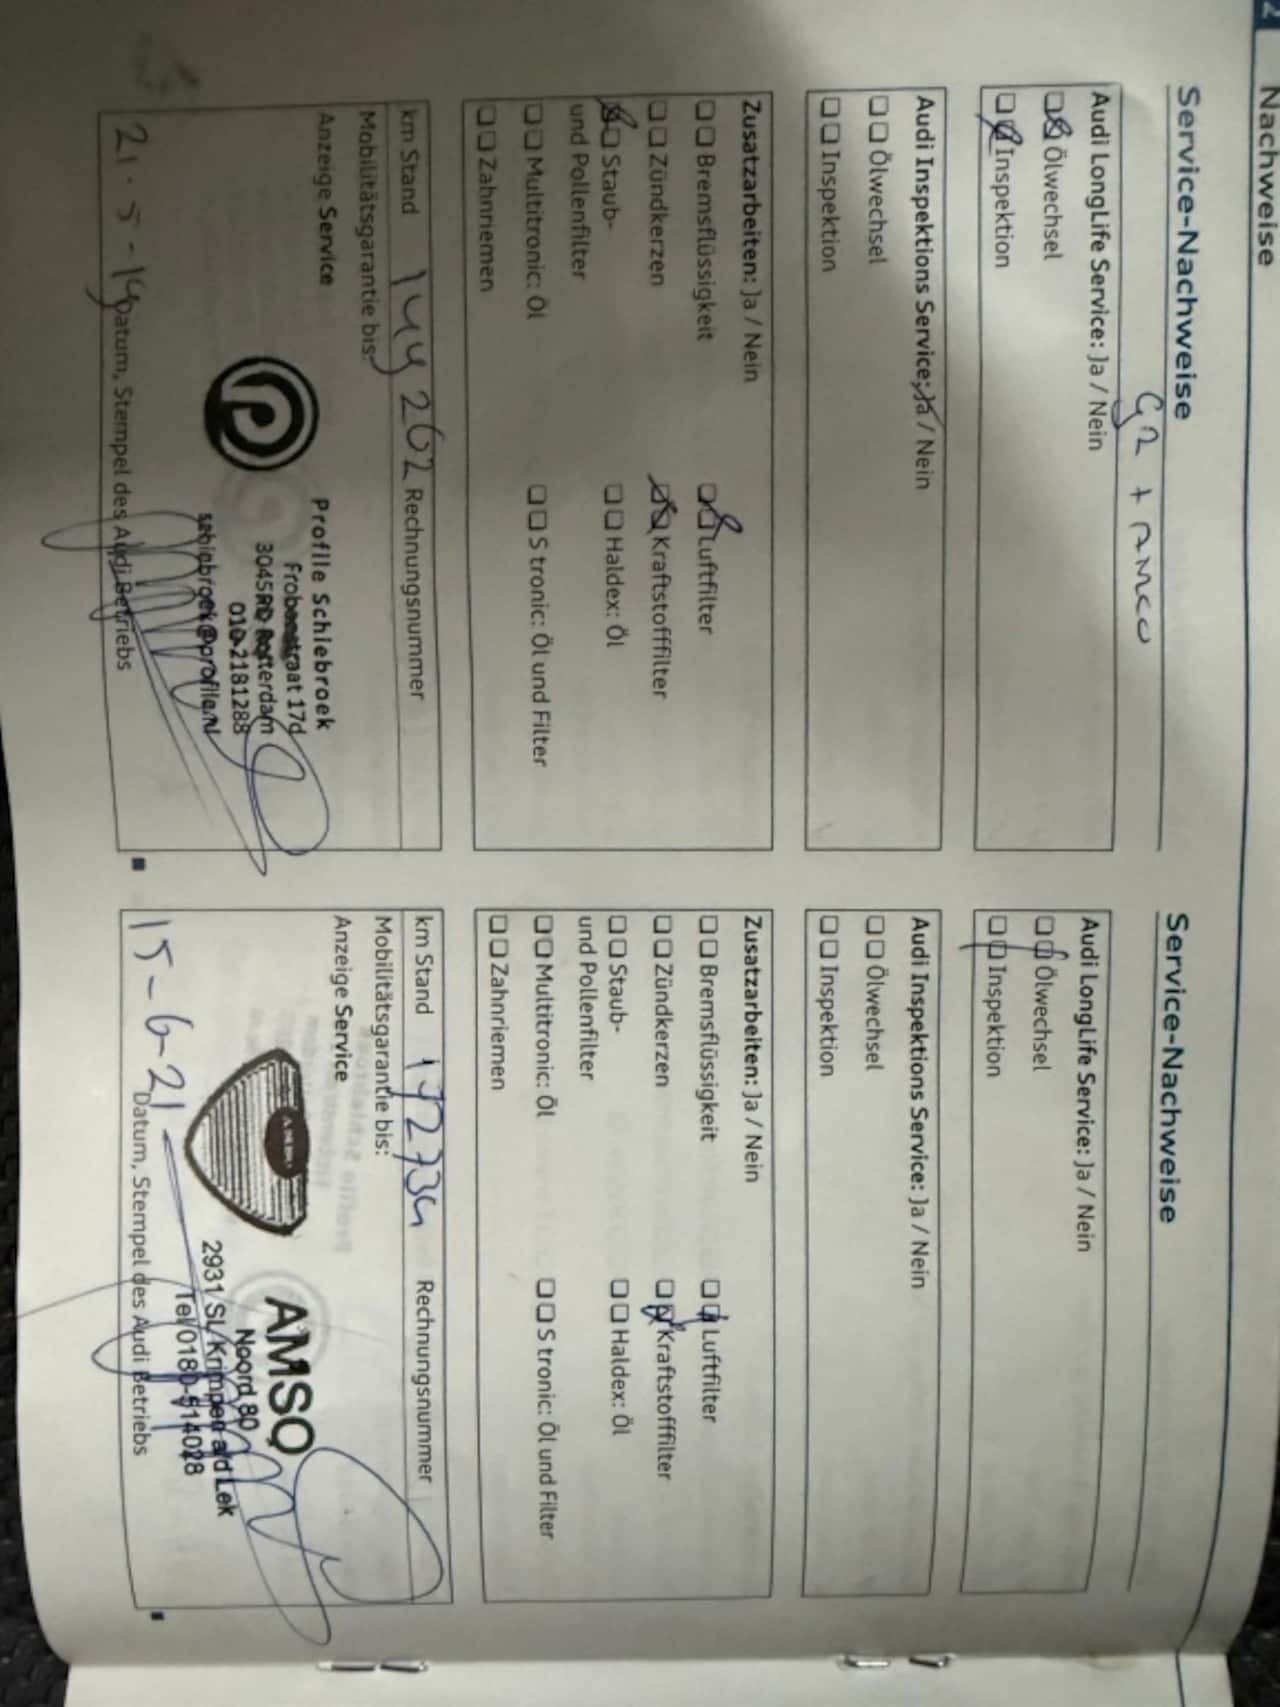 Nachweise
Service-Nachweise
Audi LongLife Service: Ja / Nein
Ölwechsel
Inspektion
Audi Inspektions Service: Ja / Nein
Ölwechsel
Inspektion
Zusatzarbeiten: Ja / Nein
Bremsflüssigkeit
Luftfilter
Zündkerzen
Kraftstofffilter
Staub-
und Pollenfilter
Haldex: Öl
Multitronic: Öl
S tronic: Öl und Filter
Zahnriemen
km Stand 144 202 Rechnungsnummer
Mobilitätsgarantie bis:
Anzeige Service
Profile Schiebroek
Frobenstraat 17d
3045RD Rotterdam
010-2181288
schiebroek@profile.nl
21-5-19
Datum, Stempel des Audi Betriebs
Service-Nachweise
Audi LongLife Service: Ja / Nein
Ölwechsel
Inspektion
Audi Inspektions Service: Ja / Nein
Ölwechsel
Inspektion
Zusatzarbeiten: Ja / Nein
Bremsflüssigkeit
Luftfilter
Zündkerzen
Kraftstofffilter
Staub-
und Pollenfilter
Haldex: Öl
Multitronic: Öl
S tronic: Öl und Filter
Zahnriemen
km Stand 172734 Rechnungsnummer
Mobilitätsgarantie bis:
Anzeige Service
AMSQ
Noord 80
2931 SL Krimpen a/d Lek
Tel 0180-514028
15-6-21
Datum, Stempel des Audi Betriebs